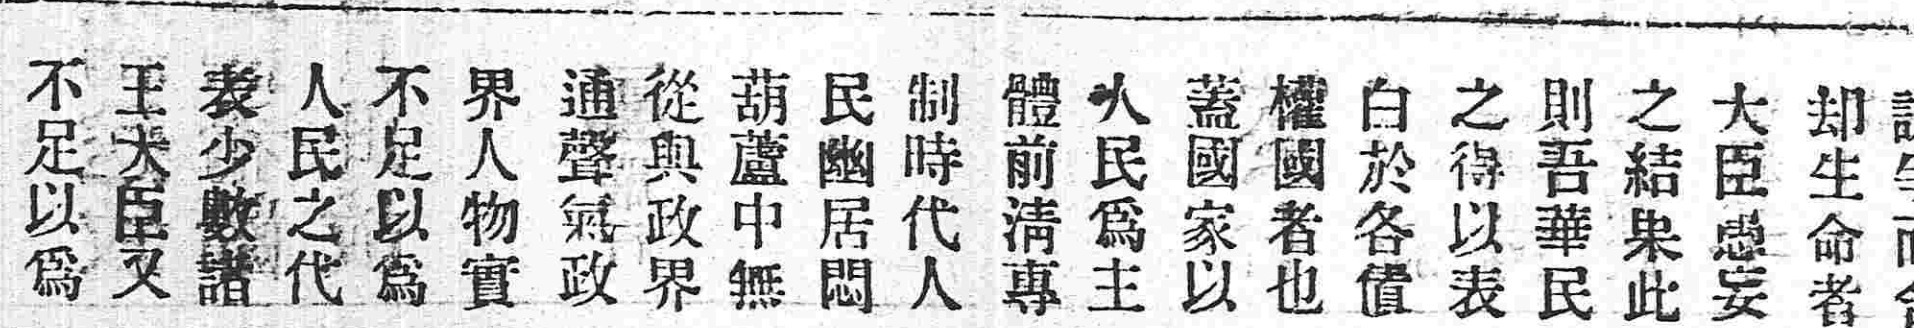 却生命者
大臣愚妄
之結果此
則吾華民
之得以表
白於各債
權國者也
蓋國家以
人民爲主
體前淸專
制時代人
民幽居悶
葫蘆中無
從與政界
通聲氣政
界人物實
不足以爲
人民之代
表少數諸
王大臣又
不足以爲